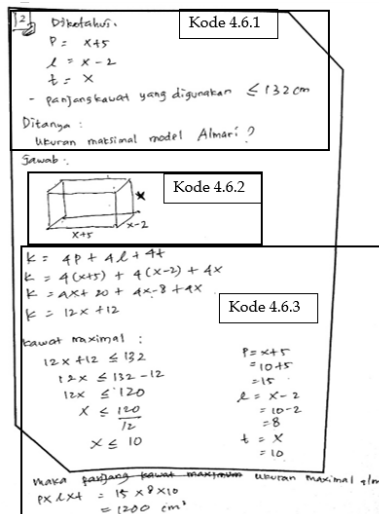 2. Diketahui. Kode 4.6.1
P = x+5
l = x - 2
t = x
- panjang kawat yang digunakan ≤ 132 cm
Ditanya :
Ukuran maksimal model Almari ?
Jawab :
Kode 4.6.2
x
x-2
x+5
K = 4P + 4l + 4t
K = 4(x+5) + 4(x-2) + 4x
K = 4x + 20 + 4x - 8 + 4x
Kode 4.6.3
K = 12x + 12
kawat maximal :
12x + 12 ≤ 132
12x ≤ 132 - 12
12x ≤ 120
x ≤ 120/12
x ≤ 10
P = x+5
= 10+5
= 15
l = x - 2
= 10 - 2
= 8
t = x
= 10
maka panjang kawat maximum ukuran maximal
P x l x t = 15 x 8 x 10
= 1200 cm³